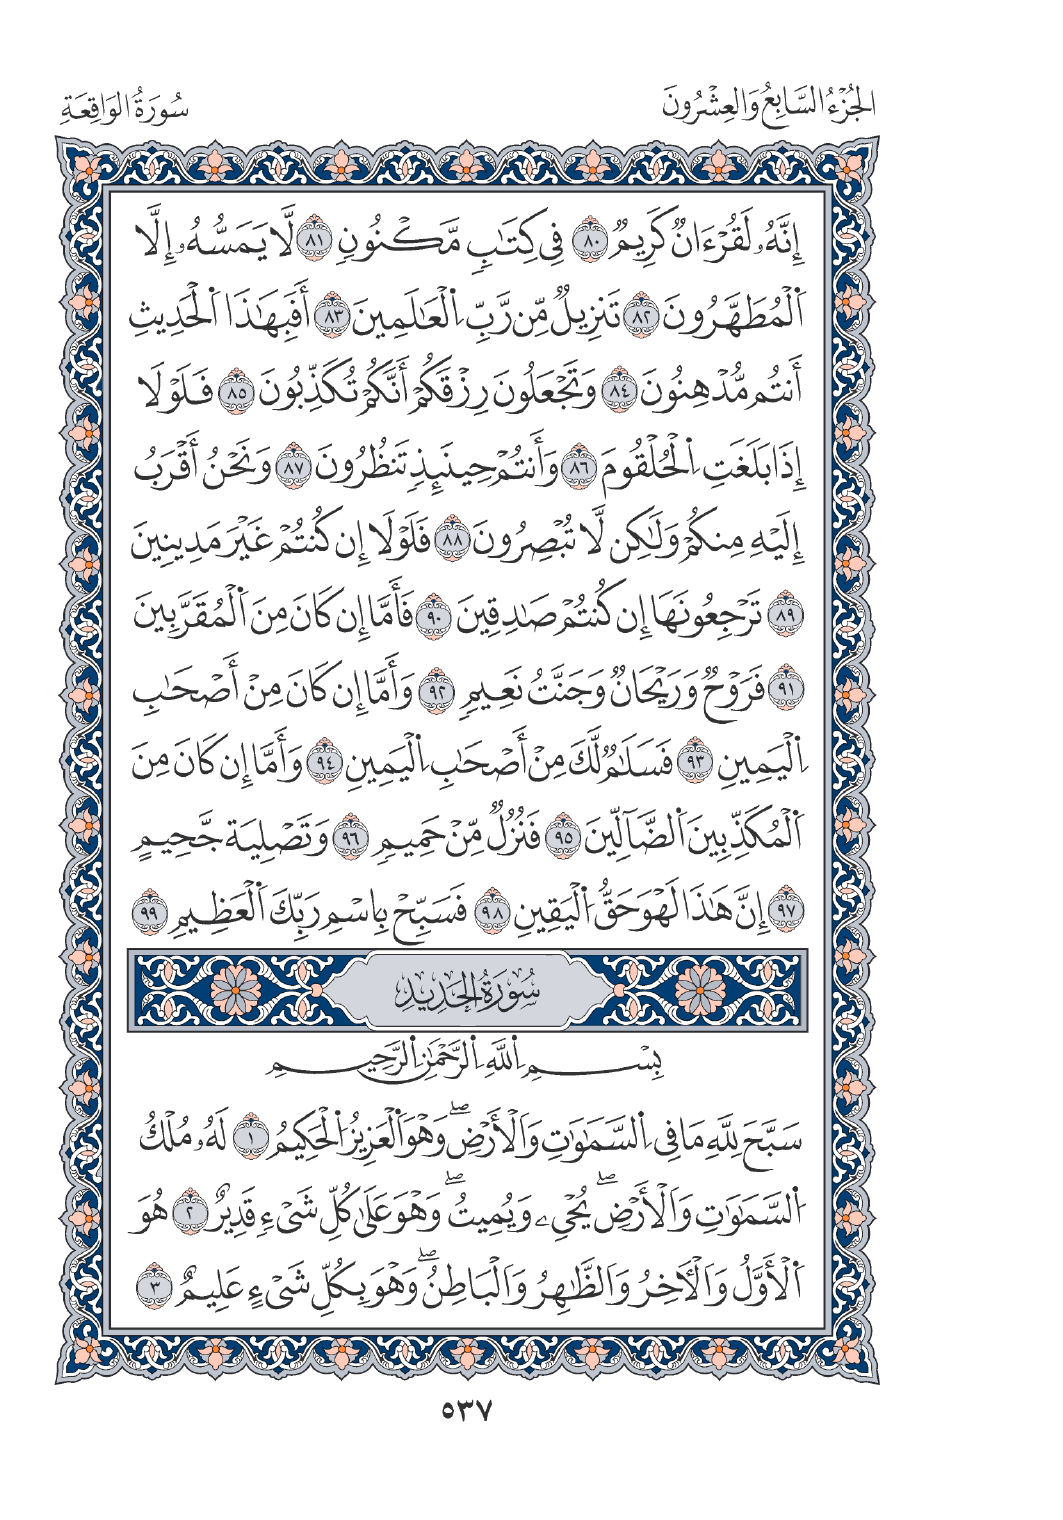 الجُزْءُ السَّابِعُ وَالعِشْرُونَ
سُورَةُ الوَاقِعَةِ
إِنَّهُۥ لَقُرْءَانٌ كَرِيمٌ ٨٠ فِي كِتَٰبٍ مَّكْنُونٍ ٨١ لَّا يَمَسُّهُۥ إِلَّا
اَ۬لْمُطَهَّرُونَ ٨٢ تَنزِيلٌ مِّن رَّبِّ اِ۬لْعَٰلَمِينَ ٨٣ أَفَبِهَٰذَا اَ۬لْحَدِيثِ
أَنتُم مُّدْهِنُونَ ٨٤ وَتَجْعَلُونَ رِزْقَكُمْ أَنَّكُمْ تُكَذِّبُونَ ٨٥ فَلَوْلَا
إِذَا بَلَغَتِ اِ۬لْحُلْقُومَ ٨٦ وَأَنتُمْ حِينَئِذٍ تَنظُرُونَ ٨٧ وَنَحْنُ أَقْرَبُ
إِلَيْهِ مِنكُمْ وَلَٰكِن لَّا تُبْصِرُونَ ٨٨ فَلَوْلَا إِن كُنتُمْ غَيْرَ مَدِينِينَ
٨٩ تَرْجِعُونَهَا إِن كُنتُمْ صَٰدِقِينَ ٩٠ فَأَمَّا إِن كَانَ مِنَ اَ۬لْمُقَرَّبِينَ
٩١ فَرَوْحٌ وَرَيْحَانٌ وَجَنَّتُ نَعِيمٍ ٩٢ وَأَمَّا إِن كَانَ مِنْ أَصْحَٰبِ
اِ۬لْيَمِينِ ٩٣ فَسَلَٰمٌ لَّكَ مِنْ أَصْحَٰبِ اِ۬لْيَمِينِ ٩٤ وَأَمَّا إِن كَانَ مِنَ
اَ۬لْمُكَذِّبِينَ اَ۬لضَّآلِّينَ ٩٥ فَنُزُلٌ مِّنْ حَمِيمٍ ٩٦ وَتَصْلِيَة جَّحِيمٍ
٩٧ إِنَّ هَٰذَا لَهْوَ حَقُّ اُ۬لْيَقِينِ ٩٨ فَسَبِّحْ بِاسْمِ رَبِّكَ اَ۬لْعَظِيمِ ٩٩
سُورَةُ الحَدِيدِ
بِسْمِ اِ۬للَّهِ اِ۬لرَّحْمَٰنِ اِ۬لرَّحِيمِ
سَبَّحَ لِلَّهِ مَا فِي اِ۬لسَّمَٰوَٰتِ وَالْأَرْضِۖ وَهْوَ اَ۬لْعَزِيزُ اُ۬لْحَكِيمُ ١ لَهُۥ مُلْكُ
اُ۬لسَّمَٰوَٰتِ وَالْأَرْضِۖ يُحْيِۦ وَيُمِيتُۖ وَهْوَ عَلَىٰ كُلِّ شَيْءٍ قَدِيرٌ ٢ هُوَ
اَ۬لْأَوَّلُ وَالْأٓخِرُ وَالظَّٰهِرُ وَالْبَاطِنُۖ وَهْوَ بِكُلِّ شَيْءٍ عَلِيمٌ ٣
٥٣٧